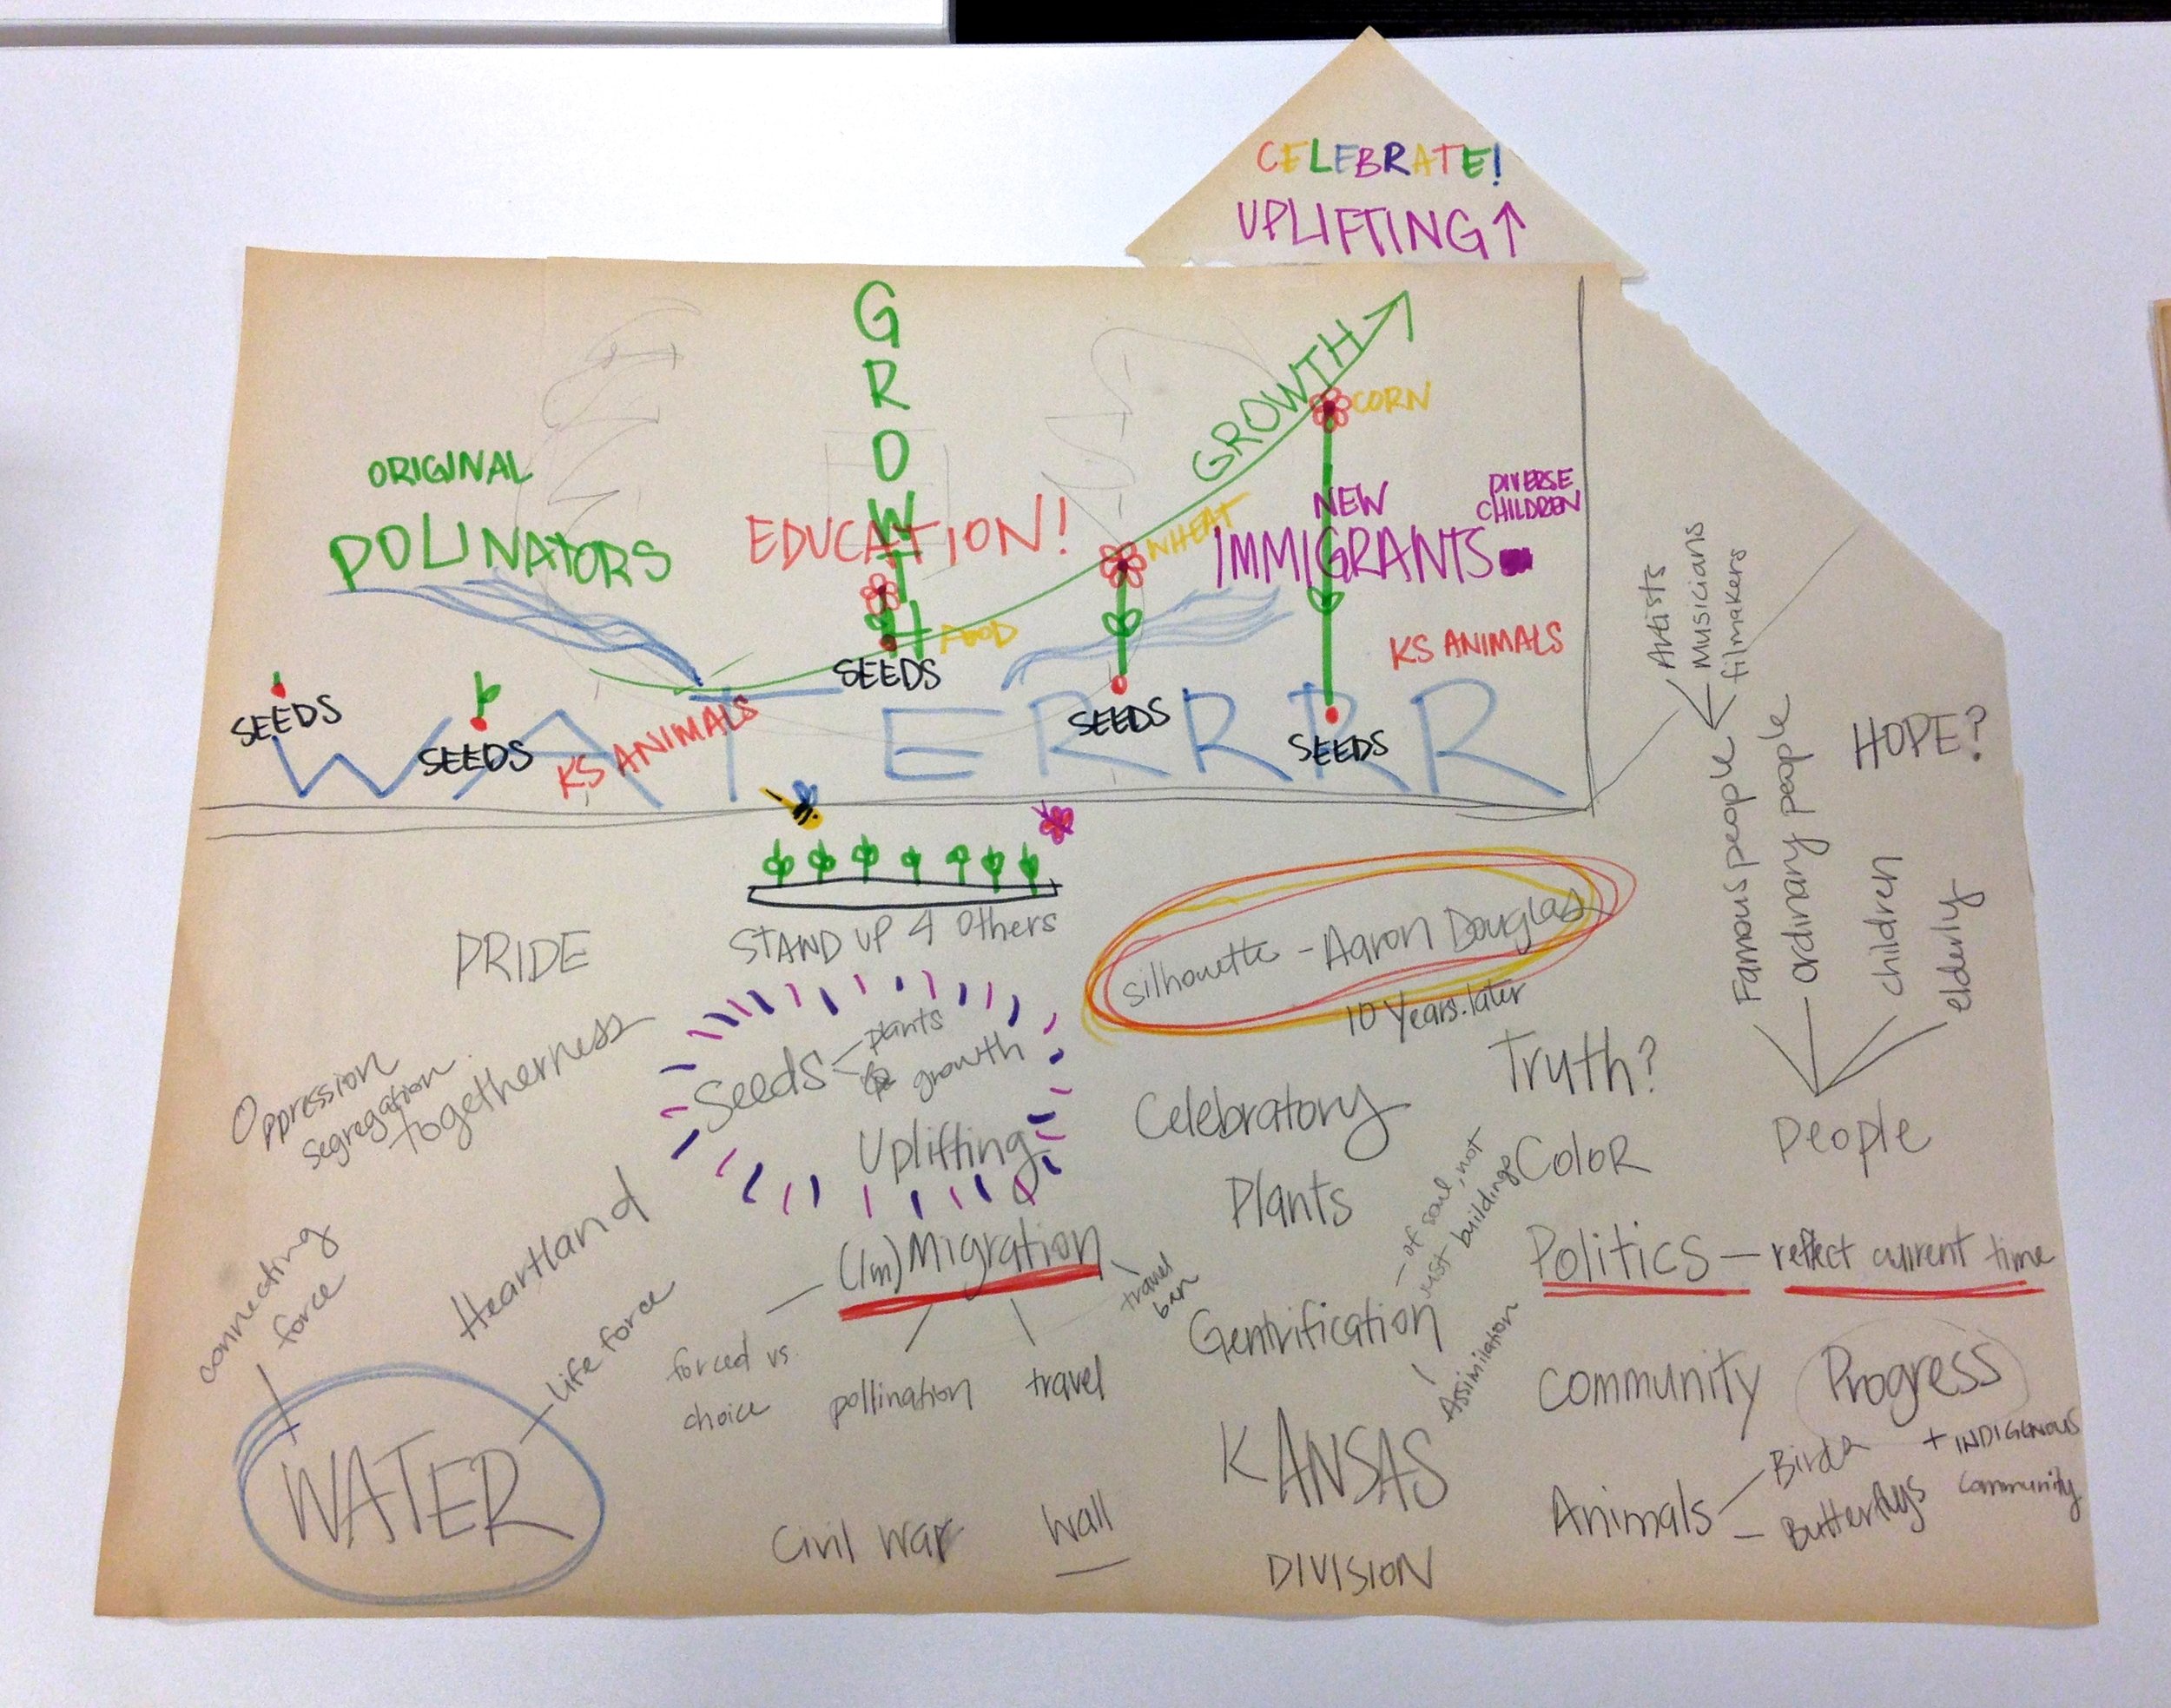 CELEBRATE!
UPLIFTING ↑
GROWTH
GROWTH
CORN
ORIGINAL
POLINATORS
EDUCATION!
WHEAT
NEW
IMMIGRANTS
DIVERSE
CHILDREN
FOOD
KS ANIMALS
SEEDS
SEEDS
SEEDS
SEEDS
SEEDS
KS ANIMALS
WATERRRR
Artists
Musicians
filmakers
Famous people
ordinary people
children
elderly
HOPE?
People
STAND UP 4 Others
PRIDE
silhouette - Aaron Douglas
10 Years later
Oppression
Segregation
togetherness
Seeds
plants
growth
Uplifting
Celebratory
Truth?
Plants
Color
Heartland
(Im)Migration
forced vs.
choice
pollination
travel
travel
ban
Gentrification
- of soul, not
just buildings
Assimilation
Politics - reflect current time
connecting
force
life force
WATER
Community
Progress
KANSAS
Civil War
Wall
DIVISION
Animals
Birds
Butterflys
+ INDIGENOUS
Community